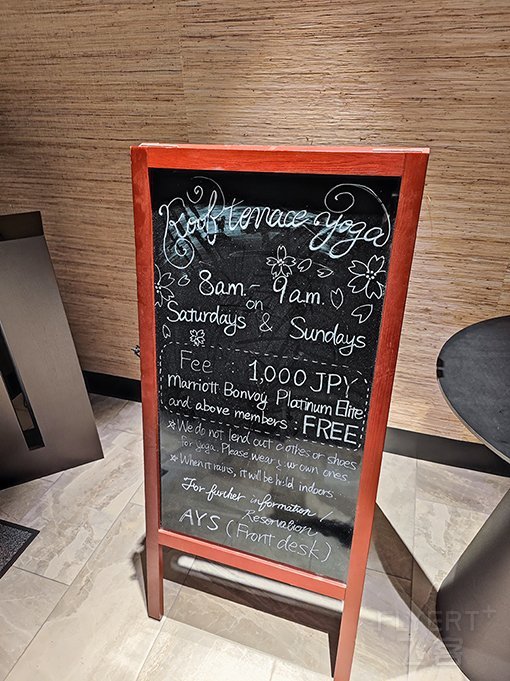 Roofterrace yoga
8am. - 9am.
on
Saturdays & Sundays
Fee : 1,000 JPY
Marriott Bonvoy Platinum Elite
and above members : FREE
* We do not lend out clothes or shoes
for yoga. Please wear your own ones.
* When it rains, it will be held indoors.
For further information /
Reservation
AYS (Front desk)
FLYERT+